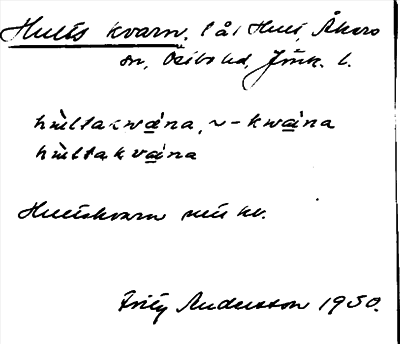 Hults kvarn, l å i Hult, Åkers
sn, Östbo hd, Jönk. l.
hùltakwa̱na, ~-kwa̱na
hùltakva̱na
Hultskvarn
Andersson 1950.